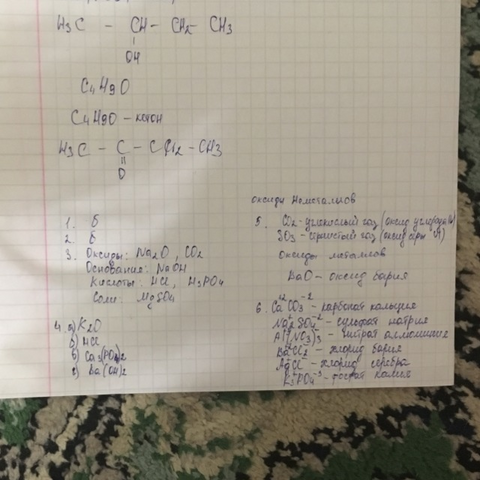 H₃C - CH - CH₂ - CH₃
OH
C₄H₉O
C₄H₉O - кетон
H₃C - C - CH₂ - CH₃
O
1. Б
2. Б
3. Оксиды: Na₂O, CO₂
Основания: NaOH
Кислоты: HCl, H₃PO₄
Соли: MgSO₄
4. а) K₂O
б) HCl
в) Ca₃(PO₄)₂
г) Ba(OH)₂
оксиды неметаллов
5. CO₂ - углекислый газ (оксид углерода IV)
SO₃ - сернистый газ (оксид серы VI)
оксиды металлов
BaO - оксид бария
6. Ca⁺²CO₃⁻² - карбонат кальция
Na₂SO₄⁻² - сульфат натрия
Al(NO₃)₃ - нитрат алюминия
BaCl₂ - хлорид бария
AgCl - хлорид серебра
K₃PO₄⁻³ - фосфат калия